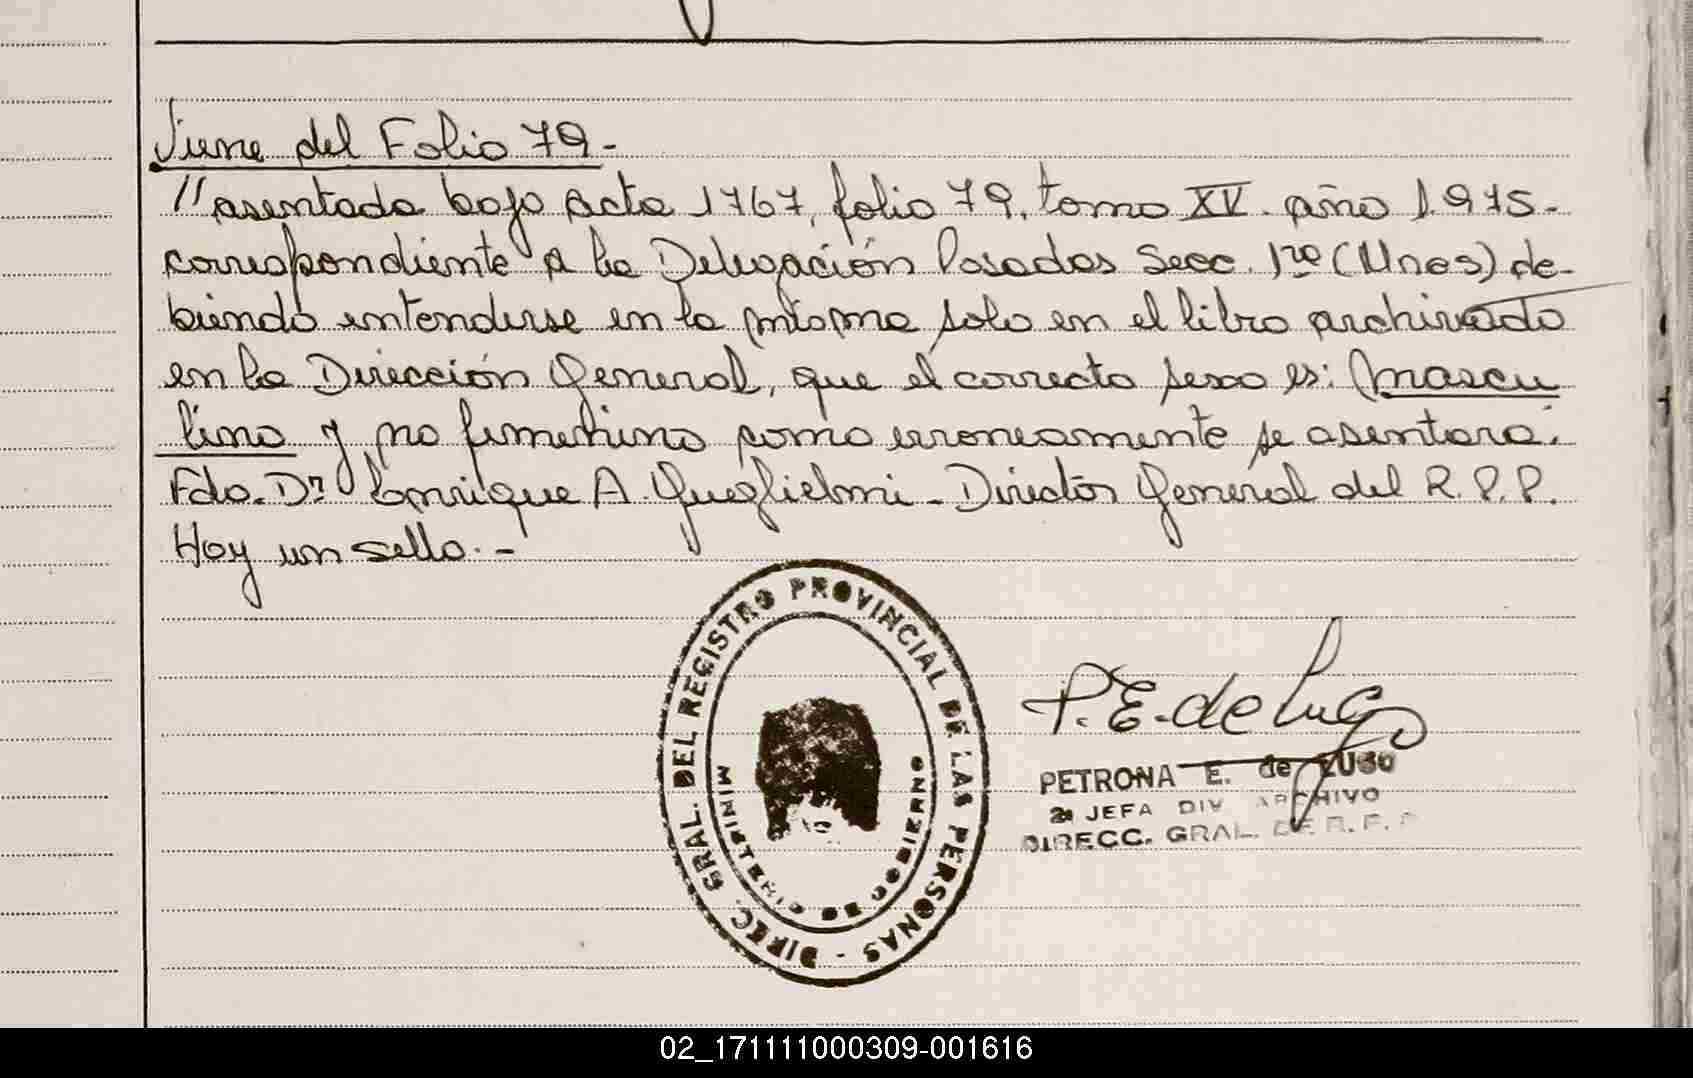 Viene del Folio 79.-
"asentada bajo acta 1767, folio 79, tomo XV. año 1.975.-
correspondiente a la Delegación Posadas Secc. 1ra (Mnes) de-
biendo entenderse en la misma solo en el libro archivado
en la Dirección General, que el correcto sexo es: Mascu
lino y no femenino como erroneamente se asentara.
Fdo. Dr. Enrique A. Guglielmi - Director General del R.P.P.
Hay un sello.-
DIREC. GRAL. DEL REGISTRO PROVINCIAL DE LAS PERSONAS -
MINISTERIO DE GOBIERNO
P. E. de Lugo
PETRONA E. de LUGO
2a JEFA DIV ARCHIVO
DIRECC. GRAL. DE R. P. P
02_171111000309-001616